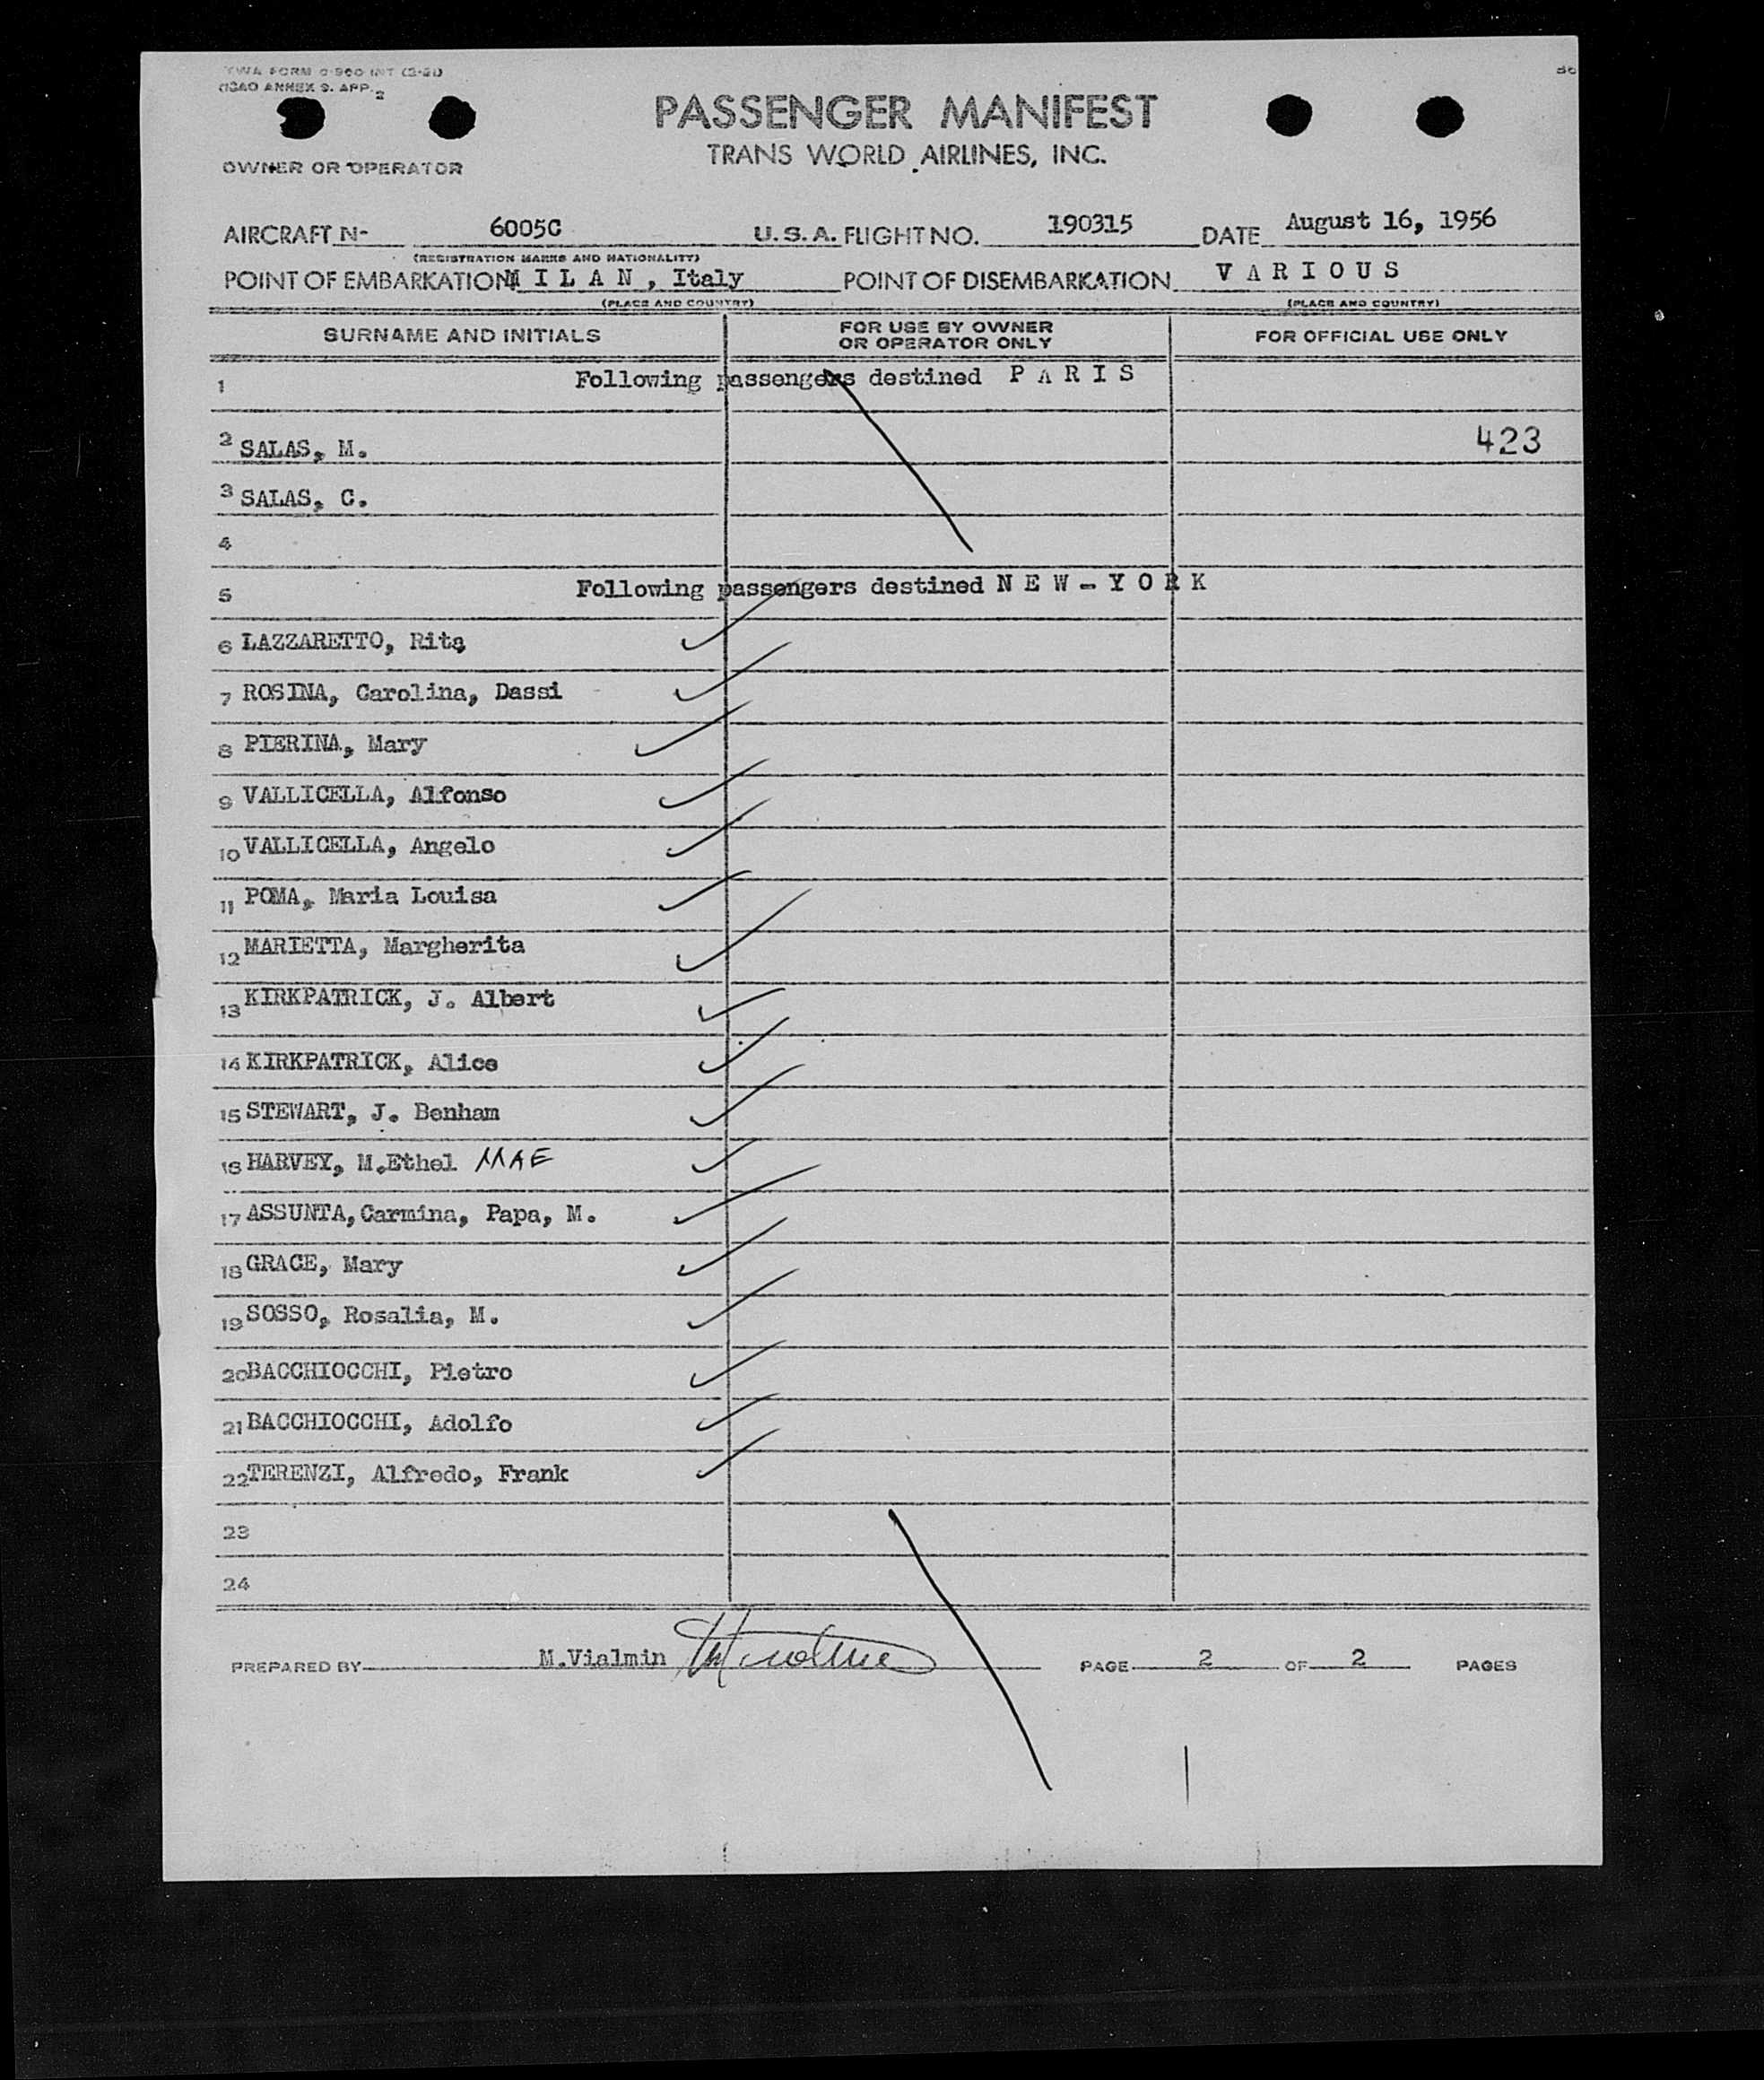 TWA FORM O-900 INT (2-21)
ICAO ANNEX 9. APP. 2
PASSENGER MANIFEST
TRANS WORLD AIRLINES, INC.
OWNER OR OPERATOR
AIRCRAFT N- 6005C U.S.A. FLIGHT NO. 190315 DATE August 16, 1956
(REGISTRATION MARKS AND NATIONALITY)
POINT OF EMBARKATION M I L A N , Italy POINT OF DISEMBARKATION V A R I O U S
(PLACE AND COUNTRY) (PLACE AND COUNTRY)
SURNAME AND INITIALS FOR USE BY OWNER OR OPERATOR ONLY FOR OFFICIAL USE ONLY
1 Following passengers destined P A R I S
2 SALAS, M. 423
3 SALAS, C.
4
5 Following passengers destined N E W - Y O R K
6 LAZZARETTO, Rita
7 ROSINA, Carolina, Dassi
8 PIERINA, Mary
9 VALLICELLA, Alfonso
10 VALLICELLA, Angelo
11 POMA, Maria Louisa
12 MARIETTA, Margherita
13 KIRKPATRICK, J. Albert
14 KIRKPATRICK, Alice
15 STEWART, J. Benham
16 HARVEY, M.Ethel MAE
17 ASSUNTA, Carmina, Papa, M.
18 GRACE, Mary
19 SOSSO, Rosalia, M.
20 BACCHIOCCHI, Pietro
21 BACCHIOCCHI, Adolfo
22 TERENZI, Alfredo, Frank
23
24
PREPARED BY M.Vialmin PAGE 2 OF 2 PAGES